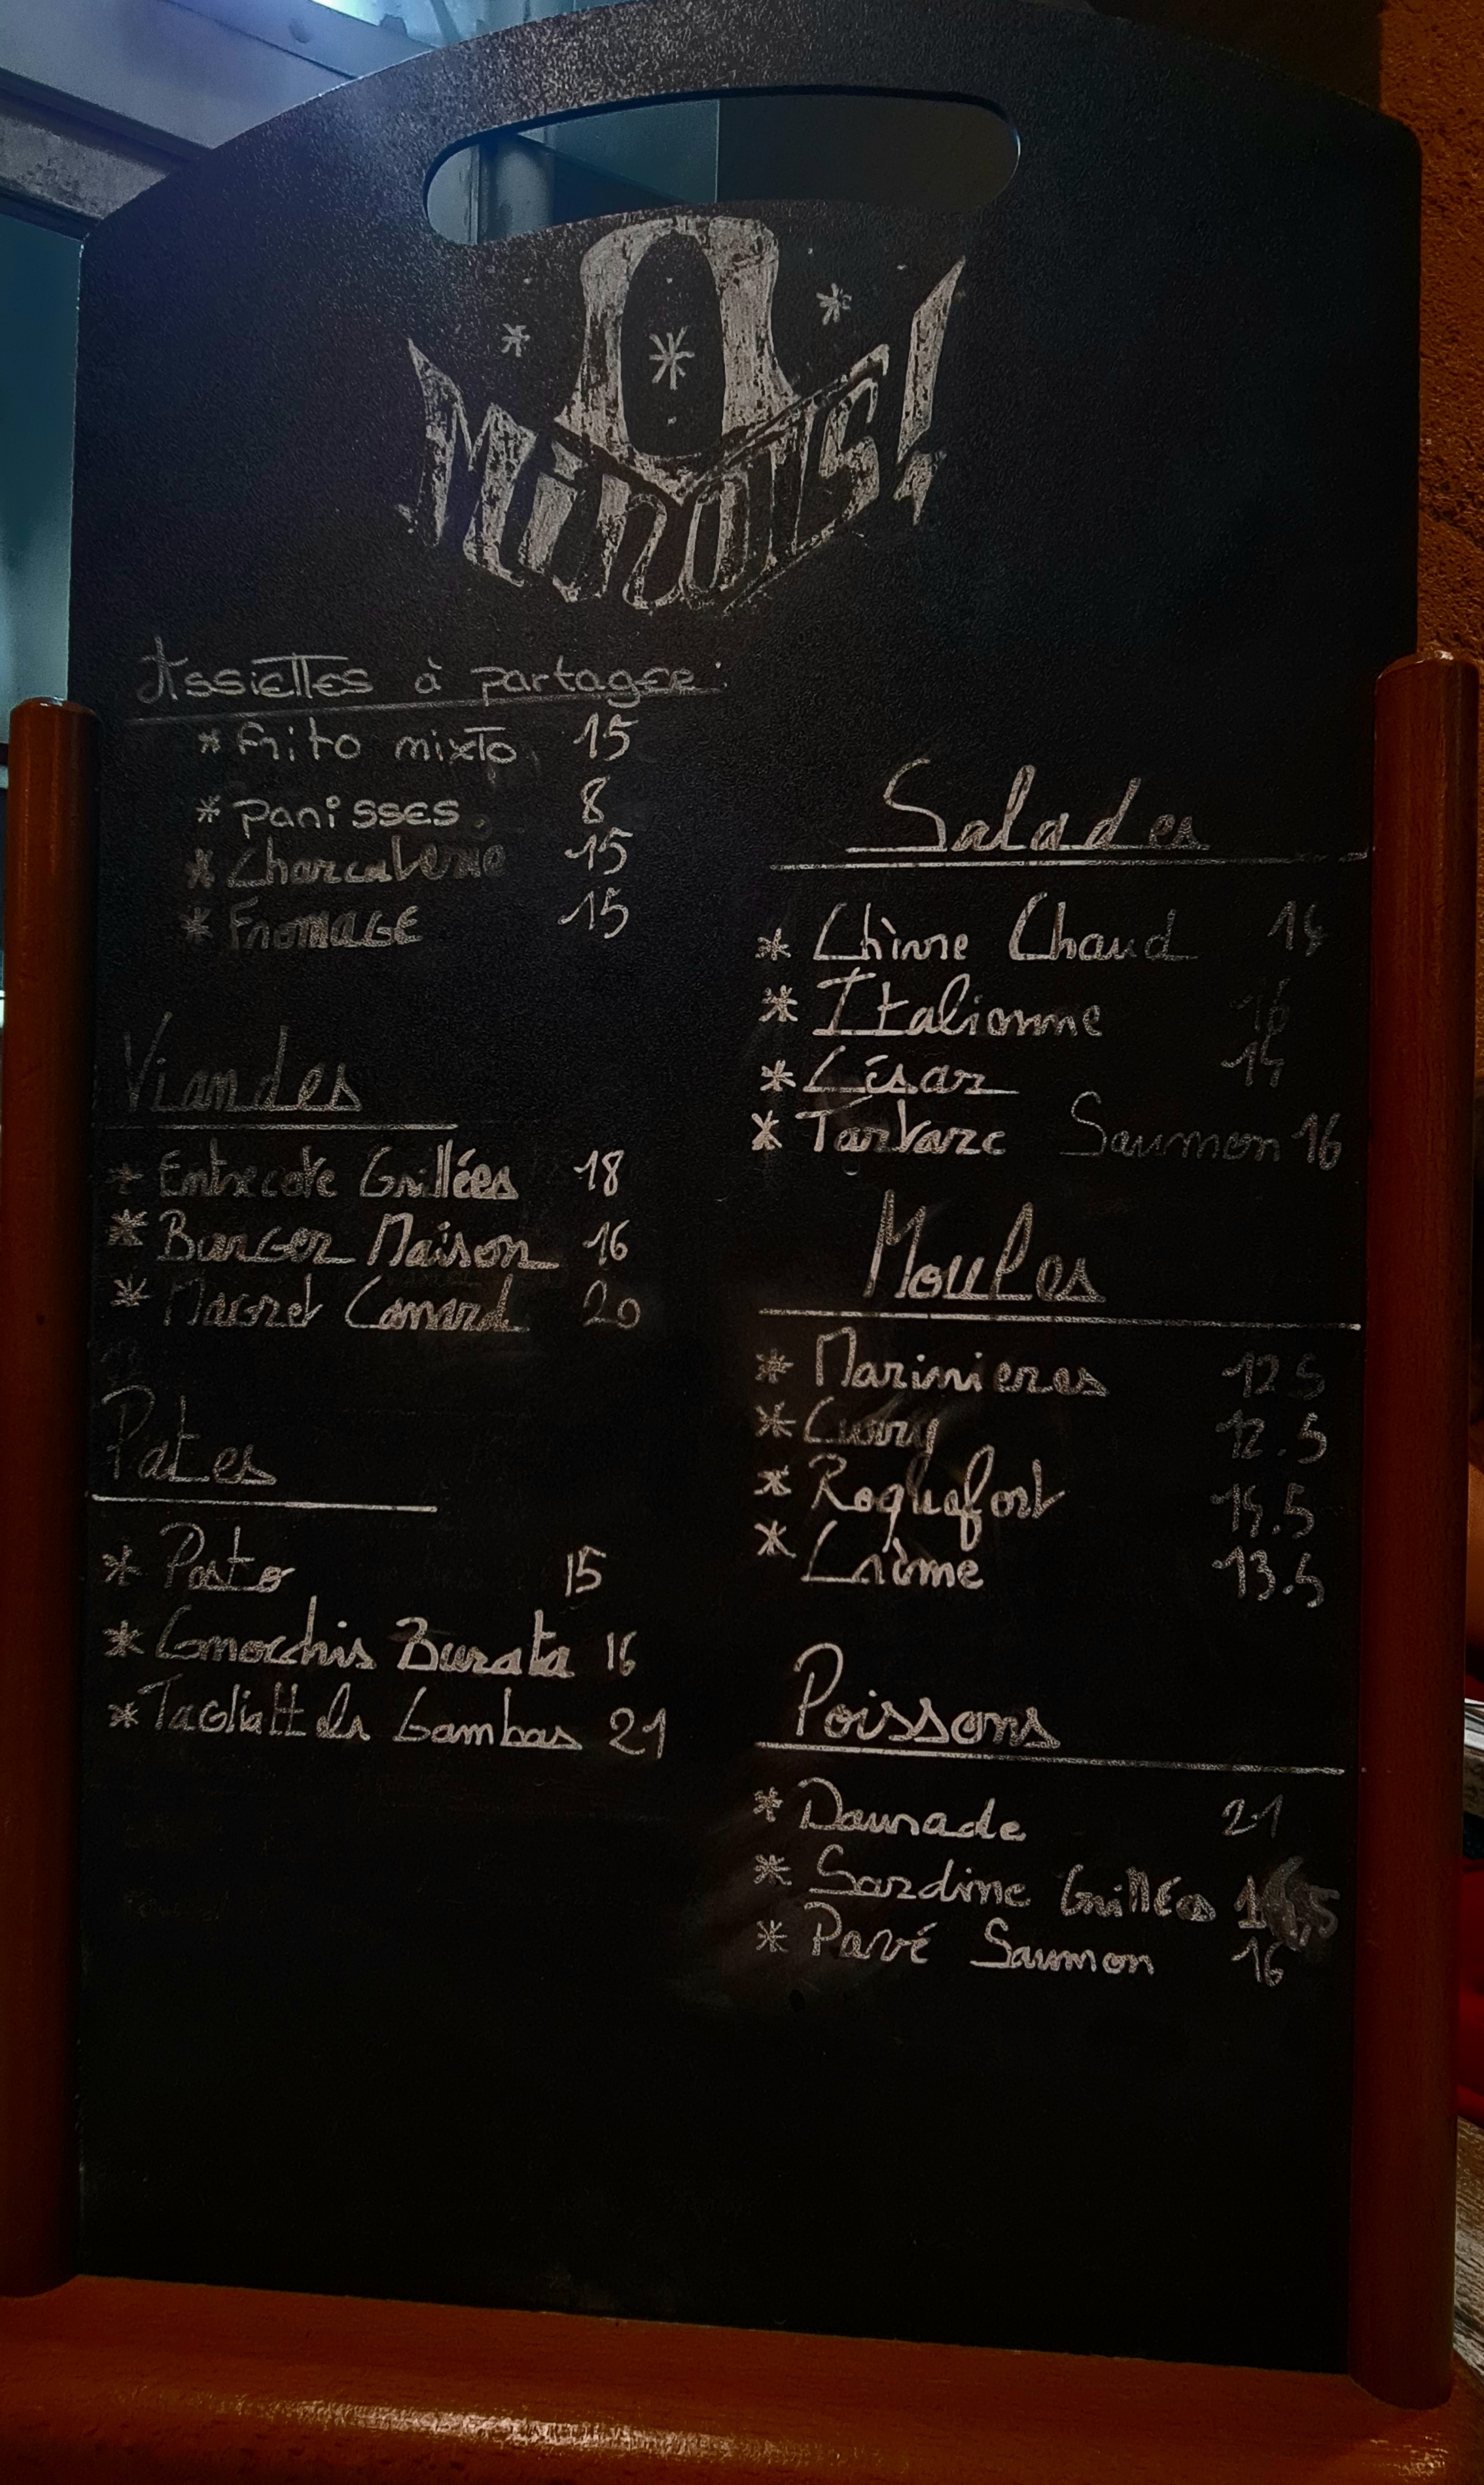 Minots!
Assiettes à partager:
* frito mixto 15
* panisses. 8
* Charcuterie 15
* Fromage 15
Viandes
* Entrecote Grillées 18
* Burger Maison 16
* Magret Canard 20
Pates
* Pesto 15
* Gnocchis Burata 16
* Tagliattels Gambas 21
Salades
* Chèvre Chaud 14
* Italienne 16
* César 14
* Tartare Saumon 16
Moules
* Marinieres 12.5
* Curry 12.5
* Roquefort 14.5
* Crème 13.5
Poissons
* Daurade 21
* Sardine Grillées
* Pavé Saumon 16